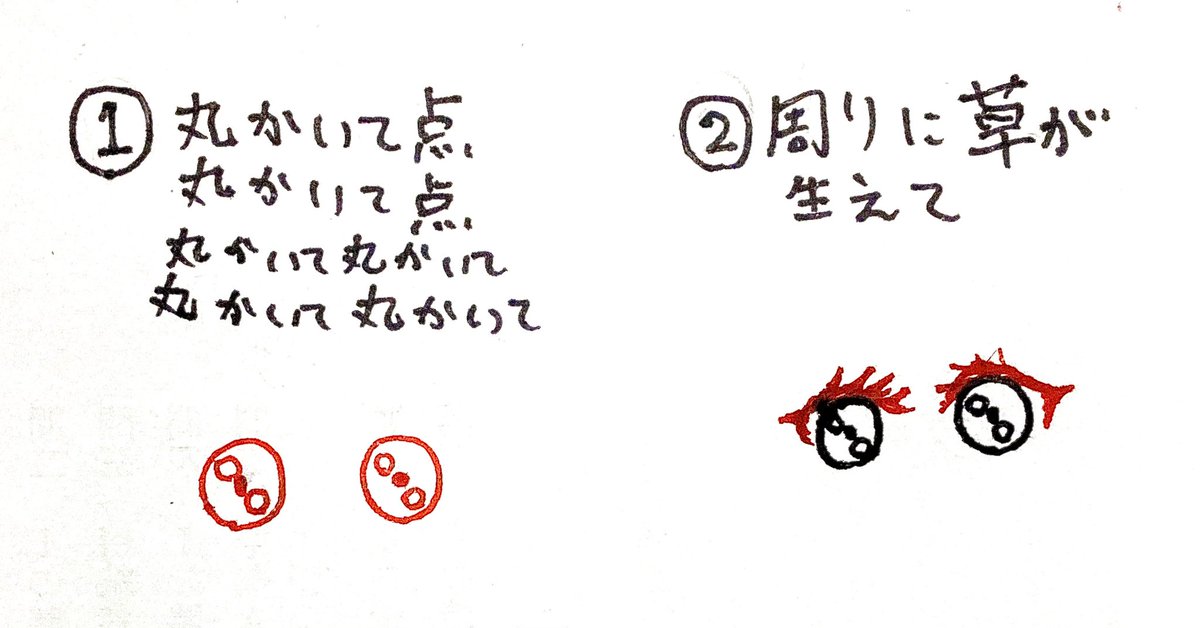 ① 丸かいて点
丸かいて点
丸かいて丸かいて
丸かいて丸かいて
② 周りに草が
生えて